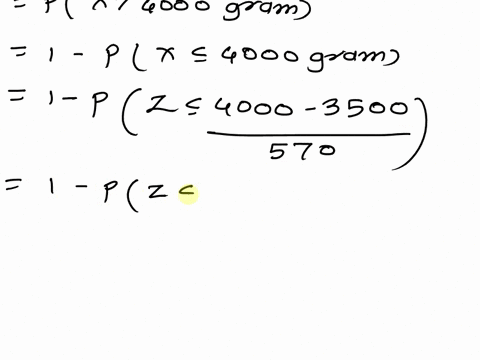 = P( X > 4000 gram)
= 1 - P ( X ≤ 4000 gram)
= 1 - P ( Z ≤ 4000 - 3500
570 )
= 1 - P ( Z ≤